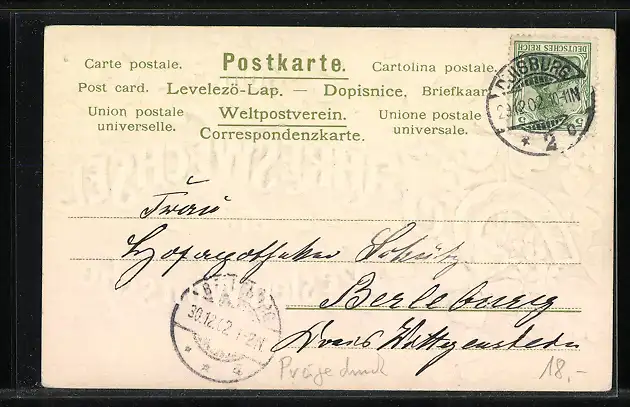 Carte postale. Postkarte. Cartolina postale.
Post card. Levelezö-Lap. — Dopisnice. Briefkaart
Union postale universelle. Weltpostverein. Unione postale universale.
Correspondenzkarte.
DEUTSCHES REICH
5 5
DUISBURG
29.12.02. 10-11N
* 2 c
JAHRESWECHSEL
Frau
Hofapotheker Schütz
Berleburg
Kreis Wittgenstein
BERLEBURG
30.12.02. 1-2N
* * a
Prägedruck
18,-